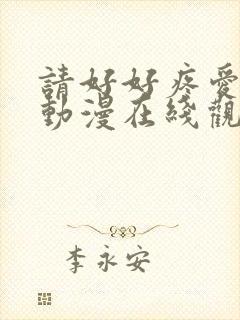 請好好疼愛
動漫在綫觀
李永安